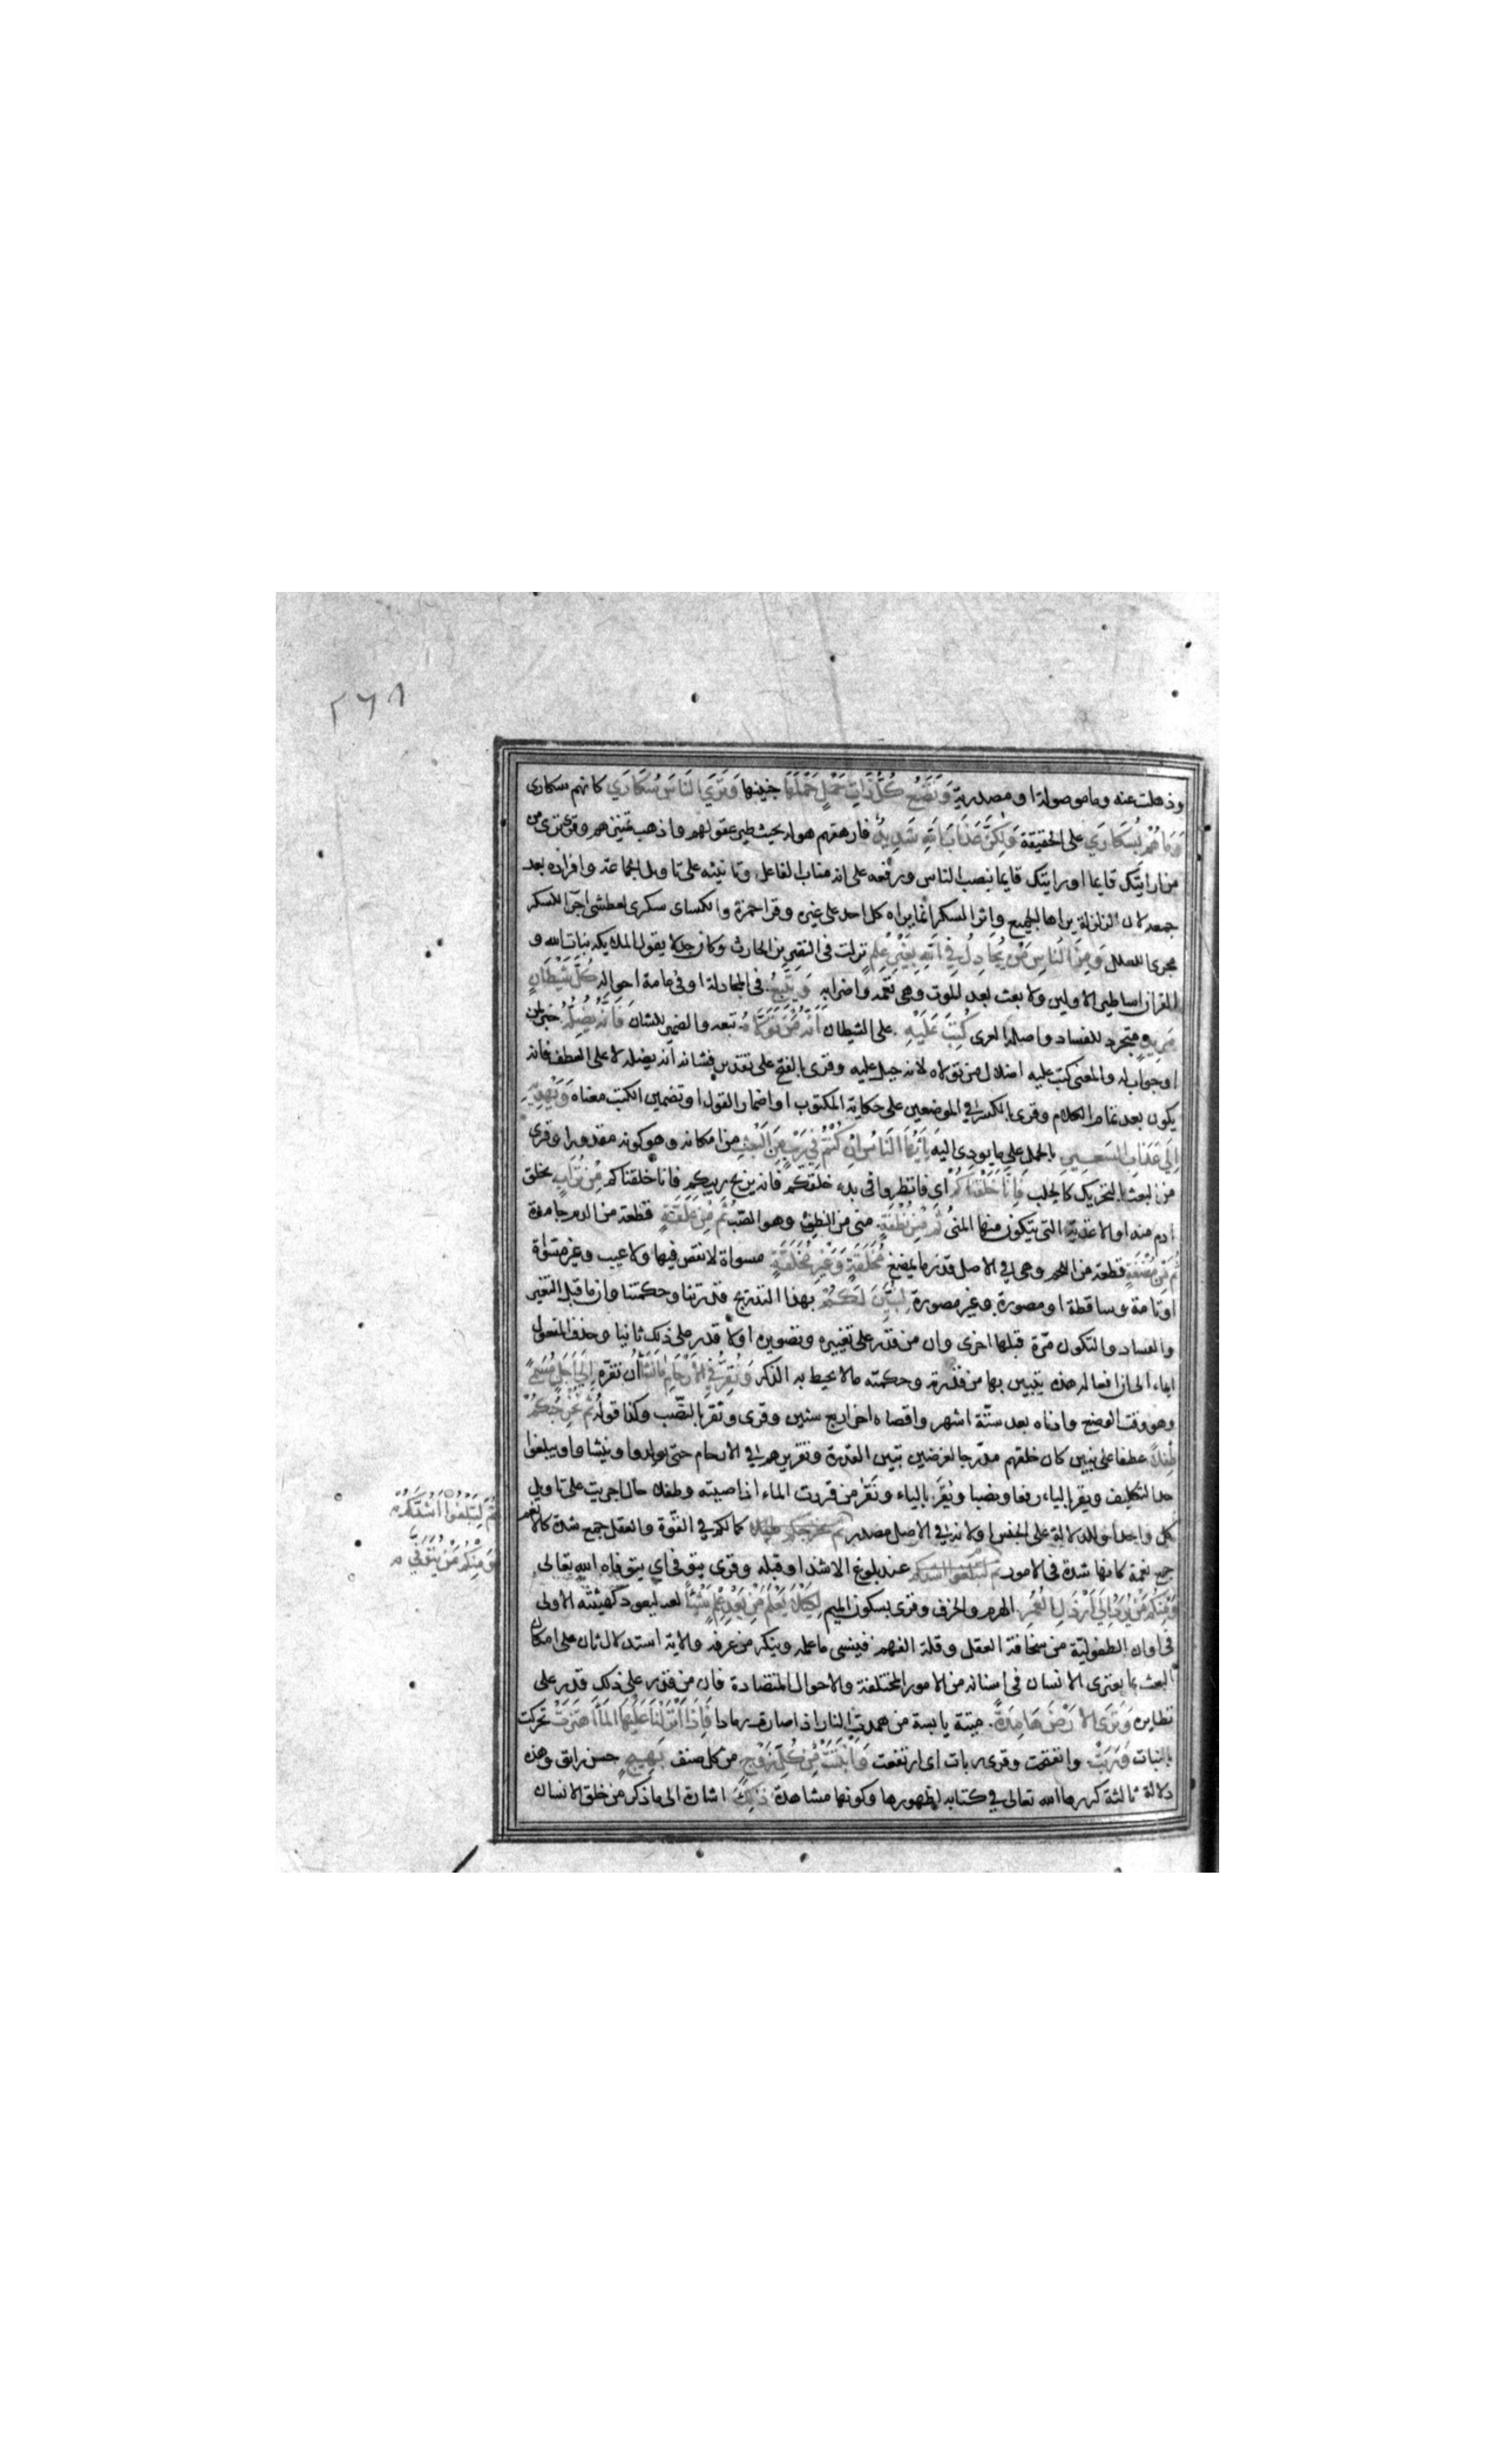 ٢٦٨
وذهلت عنه وما موصولة او مصدرية وَتَضَعُ كُلُّ ذَاتِ حَمْلٍ حَمْلَهَا جنينها وَتَرَى النَّاسَ سُكَارَى كانهم سكارى
وَمَا هُمْ بِسُكَارَى على الحقيقة وَلَكِنَّ عَذَابَ اللهِ شَدِيدٌ فارهقهم هوله بحيث طير عقولهم واذهب تمييزهم وقرئ ترى من
من ارايتك قايما او رايتك قايما بنصب الناس ورفعه على انه مناب الفاعل وتانيثه على تاويل الجماعة وافراده بعد
جمعه لان الزلزلة يراها الجميع واثر السكر انما يراه كل احد على غيره وقرا حمزة والكساى سكرى كعطشى اجرا للسكر
مجرى العلل وَمِنَ النَّاسِ مَنْ يُجَادِلُ فِي اللهِ بِغَيْرِ عِلْمٍ نزلت فى النضر بن الحارث وكان جدلا يقول الملايكة بنات الله و
القران اساطير الاولين ولا بعث بعد الموت وهى تعمه واضرابه وَيَتَّبِعُ فى المجادلة او فى عامة احواله كُلَّ شَيْطَانٍ
مَرِيدٍ متجرد للفساد واصله العرى كُتِبَ عَلَيْهِ على الشيطان أَنَّهُ مَنْ تَوَلَّاهُ تبعه والضمير للشان فَأَنَّهُ يُضِلُّهُ خبر لمن
او جواب له والمعنى كتب عليه اضلال من تولاه لانه جبل عليه وقرى بالفتح على تقدير فشانه انه يضله لا على العطف فانه
يكون بعد تمام الكلام وقرى بالكسر فى الموضعين على حكاية المكتوب او اضمار القول او تضمين الكتب معناه وَيَهْدِيهِ
إِلَى عَذَابِ السَّعِيرِ بالحمل على ما يودى اليه يَاأَيُّهَا النَّاسُ إِنْ كُنْتُمْ فِي رَيْبٍ مِنَ الْبَعْثِ من امكانه وهو كونه مقدورا وقرى
من البعث بالتحريك كالجلب فَإِنَّا خَلَقْنَاكُمْ اى فانظروا فى بدء خلقكم فانه يزيح ريبكم فانا خلقناكم مِنْ تُرَابٍ بخلق
ادم منه او الاغذية التى يتكون منها المنى ثُمَّ مِنْ نُطْفَةٍ منى من النطف وهو الصب ثُمَّ مِنْ عَلَقَةٍ قطعة من الدم جامدة
ثُمَّ مِنْ مُضْغَةٍ قطعة من اللحم وهى فى الاصل قدر ما يمضغ مُخَلَّقَةٍ وَغَيْرِ مُخَلَّقَةٍ مسواة لا نقص فيها ولا عيب وغير مسواة
او تامة وساقطة او مصورة وغير مصورة لِنُبَيِّنَ لَكُمْ بهذا التدريج قدرتنا وحكمتنا وان ما قبل التغير
والفساد والتكون مرّة قبلها اخرى وان من قدر على تغييره وتصويره اولا قدر على ذلك ثانيا وحذف المفعول
ايماء الى ان افعاله هذه يتبين بها من قدرته وحكمته مالا يحيط به الذكر وَنُقِرُّ فِي الْأَرْحَامِ مَا نَشَاءُ ان نقره إِلَى أَجَلٍ مُسَمًّى
وهو وقت الوضع وادناه بعد ستّة اشهر واقصاه اخر اربع سنين وقرى ونُقِرَّ بالنصب وكذا قوله ثُمَّ نُخْرِجُكُمْ
طِفْلًا عطفا على نبين كان خلقهم مدرجا لغرضين تبيين القدرة وتقريرهم فى الارحام حتى يولدوا وينشاوا ويبلغوا
حد التكليف ويقرا بالياء رفعا ونصبا ويُقر بالياء ونَقُرُّ من قررت الماء اذا صببته وطفلا حال اجريت على تاويل
كل واحد او للدلالة على الجنس او لانه فى الاصل مصدر ثم نخرجكم طفلا كمالكم فى القوّة والعقل جمع شدة كالانعم
جمع نعمة كانها شدة فى الامور ثم لتبلغوا اشدكم عند بلوغ الاشد او قبله وقرى يتوفى اى يتوفاه الله تعالى
وَمِنْكُمْ مَنْ يُرَدُّ إِلَى أَرْذَلِ الْعُمُرِ الهرم والخرف وقرى بسكون الميم لِكَيْلَا يَعْلَمَ مِنْ بَعْدِ عِلْمٍ شَيْئًا ليعود كهيئته الاولى
فى اوان الطفولية من سخافة العقل وقلة الفهم فينسى ما علمه وينكر من عرفه والاية استدلال ثان على امكان
البعث بما يعترى الانسان فى اسنانه من الامور المختلفة والاحوال المتضادة فان من قدر على ذلك قدر على
نظايره وَتَرَى الْأَرْضَ هَامِدَةً ميتة يابسة من همدت النار اذا صارت رمادا فَإِذَا أَنْزَلْنَا عَلَيْهَا الْمَاءَ اهْتَزَّتْ تحركت
بالنبات وَرَبَتْ وانتفخت وقرى ربات اى ارتفعت وَأَنْبَتَتْ مِنْ كُلِّ زَوْجٍ من كل صنف بَهِيجٍ حسن رائق وهذه
دلالة ثالثة كررها الله تعالى فى كتابه لظهورها وكونها مشاهدة ذَلِكَ اشارة الى ما ذكر من خلق الانسان
ثُمَّ لِتَبْلُغُوا أَشُدَّكُمْ
وَمِنْكُمْ مَنْ يُتَوَفَّى